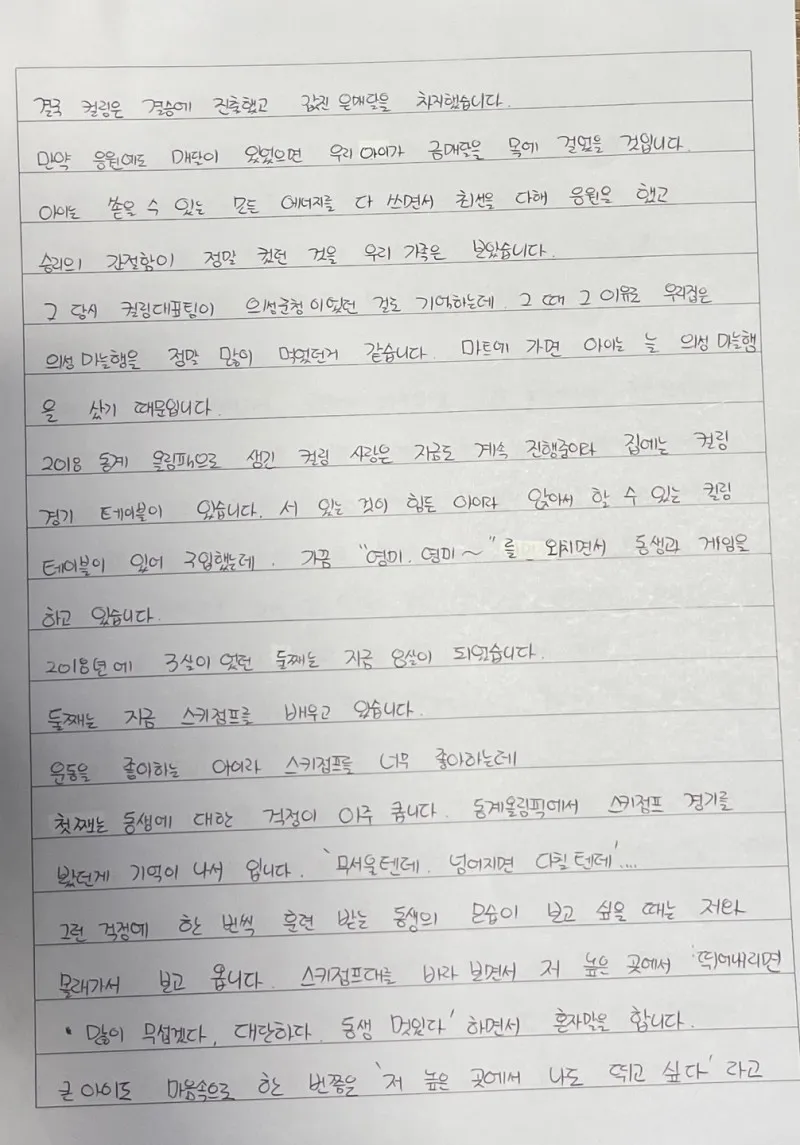 결국 컬링은 결승에 진출했고 값진 은메달을 차지했습니다.
만약 응원에도 메달이 있었으면 우리 아이가 금메달을 목에 걸었을 것입니다.
아이는 쏟을 수 있는 모든 에너지를 다 쓰면서 최선을 다해 응원을 했고
승리의 간절함이 정말 컸던 것을 우리 가족은 보았습니다.
그 당시 컬링대표팀이 의성군청이었던 걸로 기억하는데. 그 때 그 이유로 우리집은
의성 마늘햄을 정말 많이 먹었던거 같습니다. 마트에 가면 아이는 늘 의성 마늘햄
을 샀기 때문입니다.
2018 동계 올림픽으로 생긴 컬링 사랑은 지금도 계속 진행중이라 집에는 컬링
경기 테이블이 있습니다. 서 있는 것이 힘든 아이라 앉아서 할 수 있는 컬링
테이블이 있어 구입했는데. 가끔 "영미. 영미~"를 외치면서 동생과 게임을
하고 있습니다.
2018년에 3살이 었던 둘째는 지금 8살이 되었습니다.
둘째는 지금 스키점프를 배우고 있습니다.
운동을 좋아하는 아이라 스키점프를 너무 좋아하는데
첫째는 동생에 대한 걱정이 아주 큽니다. 동계올림픽에서 스키점프 경기를
봤던게 기억이 나서 입니다. '무서울텐데. 넘어지면 다칠텐데'....
그런 걱정에 한 번씩 훈련 받는 동생의 모습이 보고 싶을 때는 저와
몰래가서 보고 옵니다. 스키점프대를 바라 보면서 저 높은 곳에서 '뛰어내리면
• 많이 무섭겠다, 대단하다. 동생 멋있다' 하면서 혼자말을 합니다.
큰 아이도 마음속으로 한 번쯤을 '저 높은 곳에서 나도 뛰고 싶다' 라고